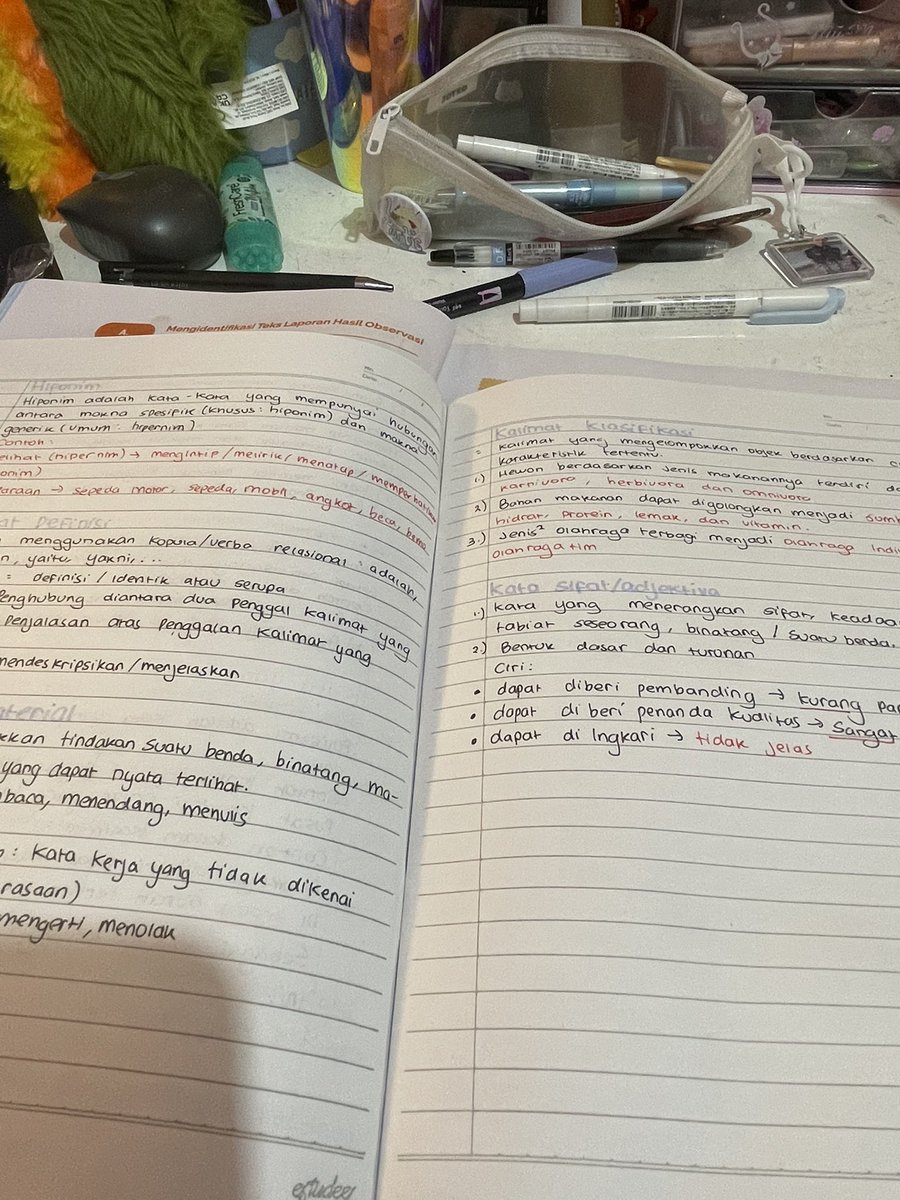 FreshCare
A
Mengidentifikasi Teks Laporan Hasil Observasi
Hiponim
Hiponim adalah kata-kata yang mempunyai hubungan
antara makna spesifik (khusus: hiponim) dan makna
generik (umum: hipernim)
Contoh:
elihat (hipernim) → mengintip/melirik/menatap/memperhatikan
onim)
araan → sepeda motor, sepeda, mobil, angkot, beca, bemo
at Definisi
menggunakan kopula/verba relasional: adalah,
n, yaitu, yakni,...
= definisi/identik atau serupa
Penghubung diantara dua penggal kalimat yang
Penjalasan atas penggalan kalimat yang
mendeskripsikan/menjelaskan
aterial
kkan tindakan suatu benda, binatang, ma-
yang dapat nyata terlihat.
baca, menendang, menulis
: kata kerja yang tidak dikenai
rasaan)
mengerti, menolak
estudee
Kalimat Klasifikasi
= kalimat yang mengelompokkan objek berdasarkan c
karakteristik tertentu.
1.) Hewan berdasarkan jenis makanannya terdiri da
karnivora, herbivora dan omnivora
2) Bahan makanan dapat digolongkan menjadi sumb
hidrat, protein, lemak, dan vitamin.
3.) Jenis² olahraga terbagi menjadi olahraga indi
olahraga tim
Kata sifat/adjektiva
1.) kata yang menerangkan sifat, keadaa
tabiat seseorang, binatang / suatu benda.
2) Bentuk dasar dan turunan
Ciri:
• dapat diberi pembanding → kurang pa
• dapat di beri penanda kualitas → sangat
• dapat di ingkari → tidak jelas